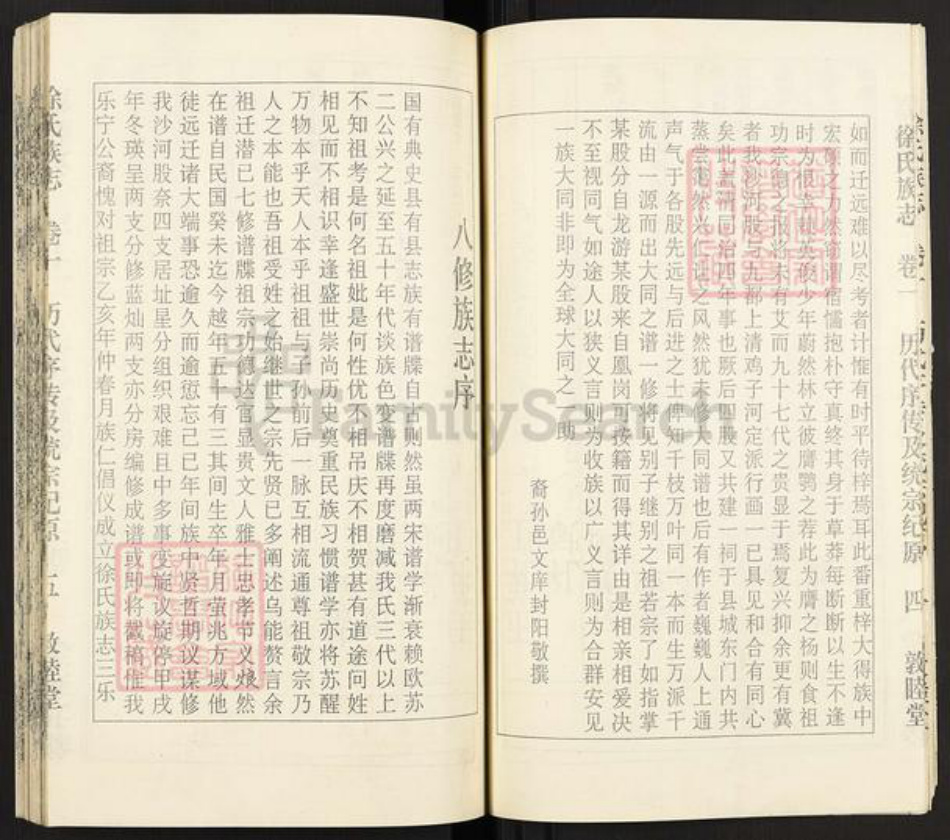 徐氏族志 卷一 历代序传及统宗纪原 四 敦睦堂
如而迁远难以尽考者计惟有时平待梓焉耳此番重梓大得族中
宏硕之力然窃谓宿儒抱朴守真终其身于草莽每断断以生不逢
时为恨幸
英俊少年蔚然林立彼膺鹗之荐此为膺之杨则食祖
功宗德之报将未有艾而九十七代之贵显于焉复兴抑余更有冀
者我沙河股与九都上清鸡子河定派行画一已具见和合有同心
矣此
清同治四年事也厥后四股又共建一祠于县城东门内共
蒸尝蔼然兴仁让之风然犹未修大同谱也后有作者巍巍人上通
声气于各股先远与后进之士俾知千枝万叶同一本而生万派千
流由一源而出大同之谱一修将见别子继别之祖若宗了如指掌
某股分自龙游某股来自凰岗可按籍而得其详由是相亲相爱决
不至视同气如途人以狭义言则为收族以广义言则为合群安见
一族大同非即为全球大同之一助
裔孙邑文庠封阳敬撰
八修族志序
国有典史县有县志族有谱牒自古则然虽两宋谱学渐衰赖欧苏
二公兴之延至五十年代谈族色变谱牒再度磨减我氏三代以上
不知祖考是何名祖妣是何性优不相吊庆不相贺甚有道途问姓
相见而不相识幸逢盛世崇尚历史奠重民族习惯谱学亦将苏醒
万物本乎天人本乎祖祖与子孙前后一脉互相流通尊祖敬宗乃
人之本能也吾祖受姓之始继世之宗先贤已多阐述乌能赘言余
祖迁潜已七修谱牒祖宗功德达官显贵文人雅士忠孝节义烺然
在谱自民国癸未迄今越年五十有三其间生卒年月茔兆方域他
徒远迁诸大端事恐逾久而逾愆忘己已年间族中贤哲期议谋修
我沙河股奈四支居址星分组织艰难且中多事变旋议旋停甲戌
年冬瑛呈两支分修蓝灿两支亦分房编修成谱或即将戳稿惟我
乐宁公裔愧对祖宗乙亥年仲春月族仁倡仪成立徐氏族志三乐
徐氏族志 卷一 历代序传及统宗纪原 五 敦睦堂
FamilySearch